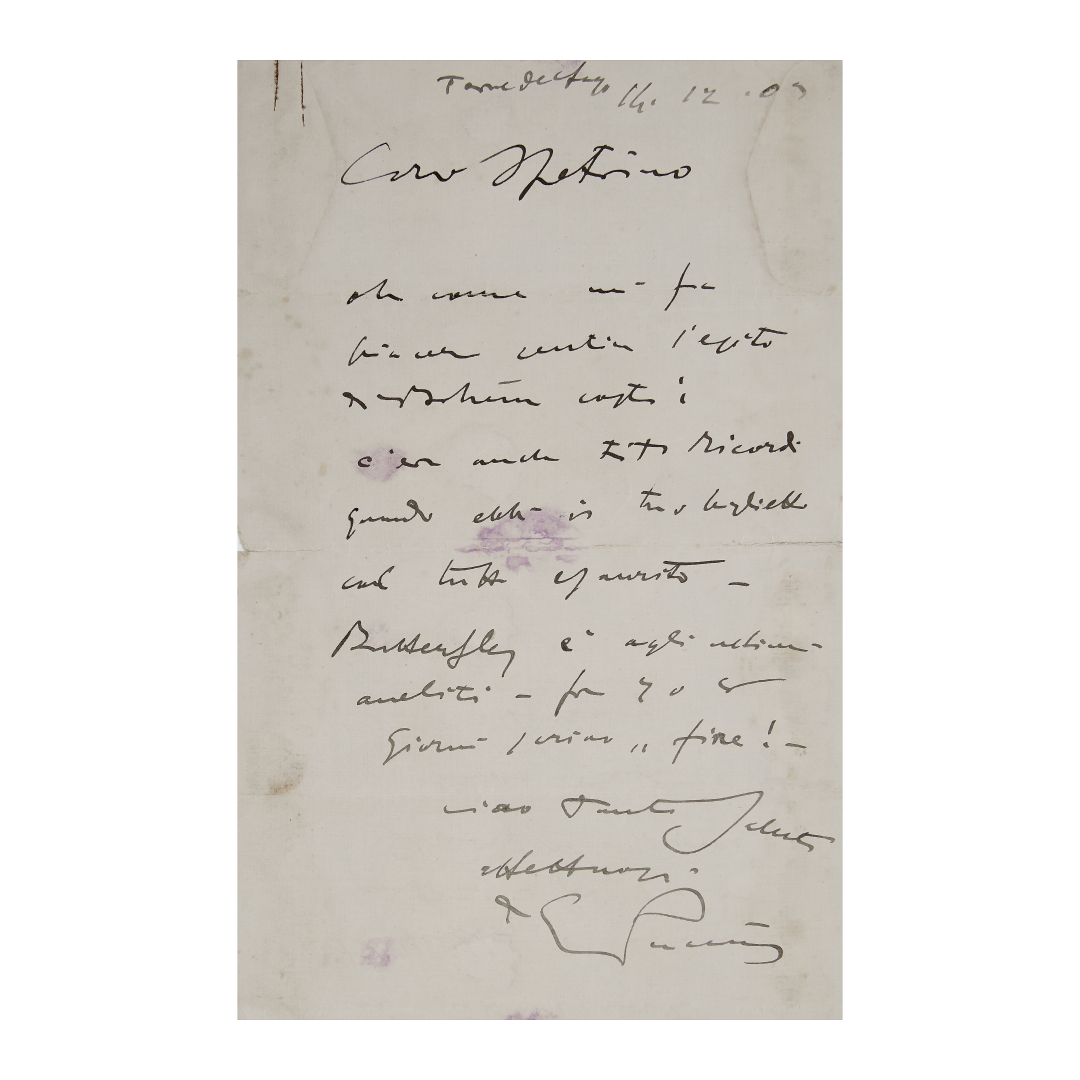 Torre del Lago 14.12.03
Caro Spetrino
oh come mi fa
piacere sentire l'esito
di Bohème costì!
c'era anche Tito Ricordi
quando ebbi il tuo biglietto
col tutto esaurito –
Butterfly è agli ultimi
aneliti – fra 7 o 8
giorni scrivo „ fine! –
ciao tanti saluti
affettuosi
di G Puccini